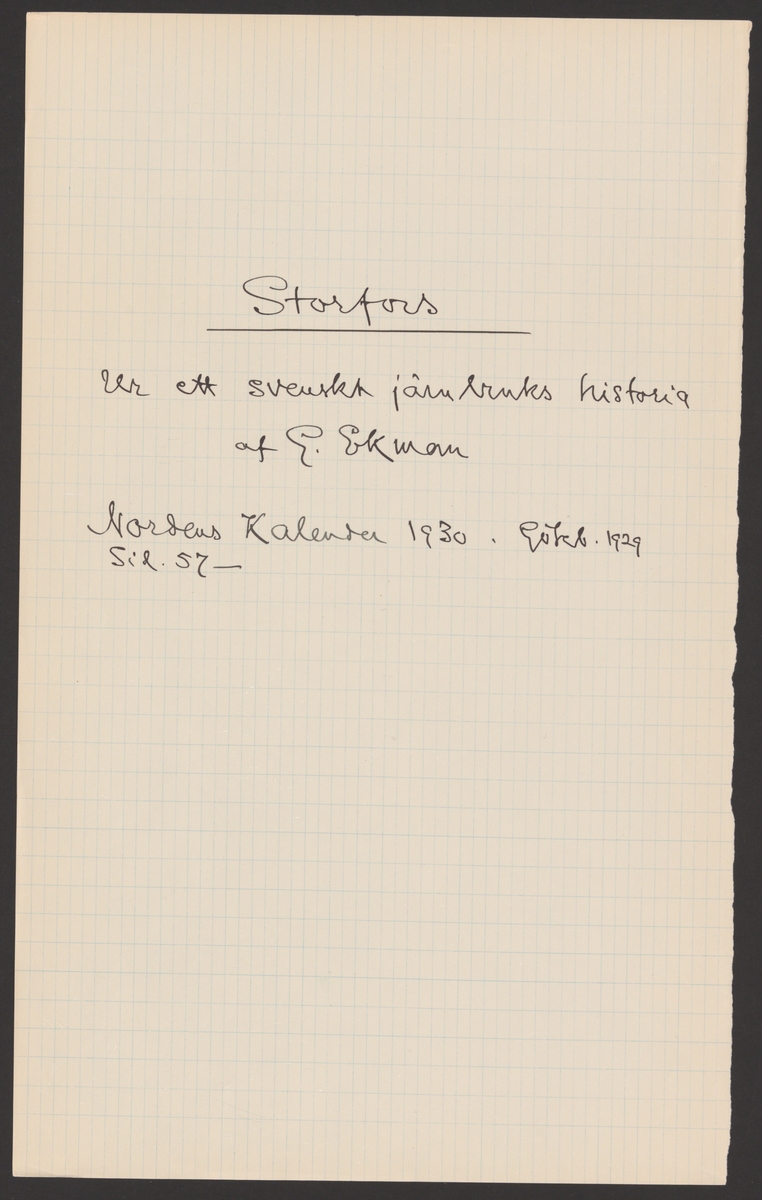 Storfors
Ur ett svenskt järnbruks historia
af G. Ekman
Nordens Kalender 1930. Göteb. 1929
Sid. 57—